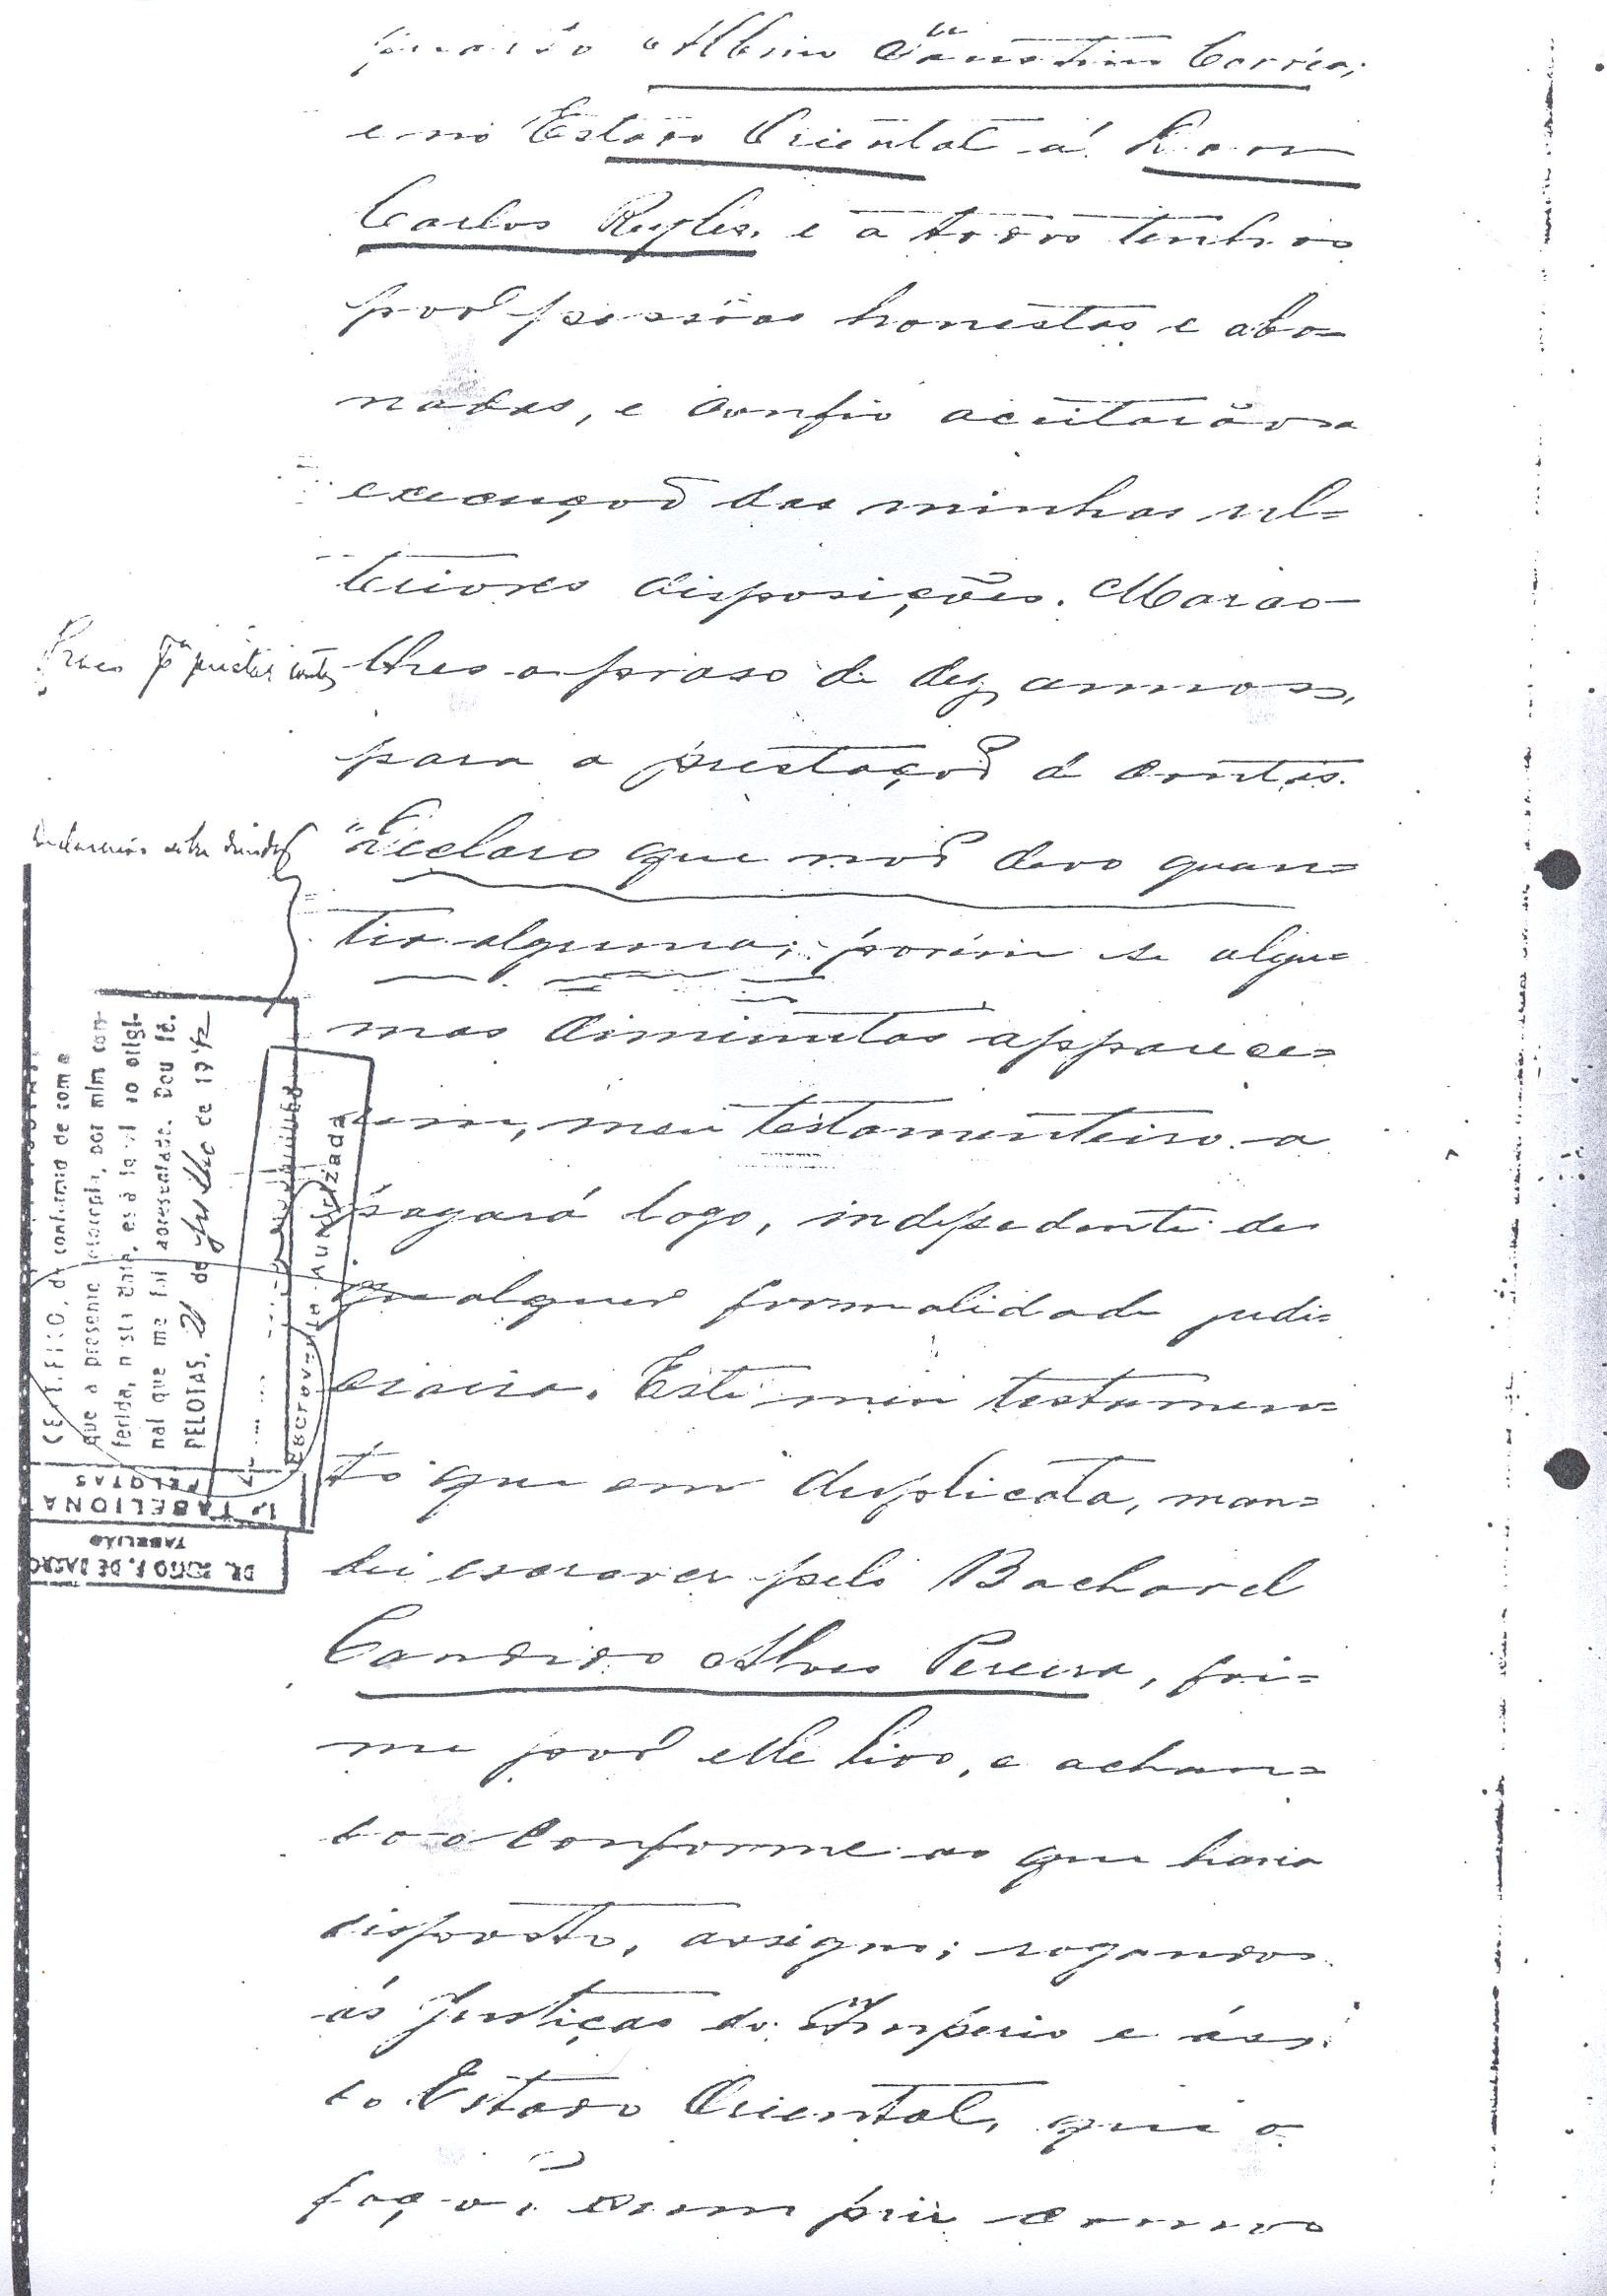 Albino Faustino Corrêa;
e no Estado Oriental á Dom
Carlos Reyles. e a todos tenho
por pessôas honestas e abo=
nadas, e confio aceitarão a
execuçaõ das minhas ul=
teriores disposições. Marco-
Praso pª prestar contas
lhes o praso de dez annos,
para a prestaçaõ de contas.
Declaro que naõ devo quan=
tia alguma; porém se algu=
mas diminutas apparece=
rem, meu testamenteiro a
pagará logo, indepedente de
qualquer formalidade judi=
ciaria. Este meu testamen=
to que em duplicata, man=
dei escrever pelo Bacharel
Candido Alves Pereira, foi=
me por elle lido, e achan=
do-o conforme ao que havia
disposto, assigno; rogando
ás Justiças do Imperio e ás
do Estado Oriental, que o
façaõ cumprir como
CERTIFICO, dou
que a presente fotocopia, por mim con-
ferida, nesta data, está igual ao origi-
nal que me foi apresentado. Dou fé.
PELOTAS, 21 de Julho de 19
Escrevente Autorizada
1º TABELIONA
PELOTAS
TABELIÃO